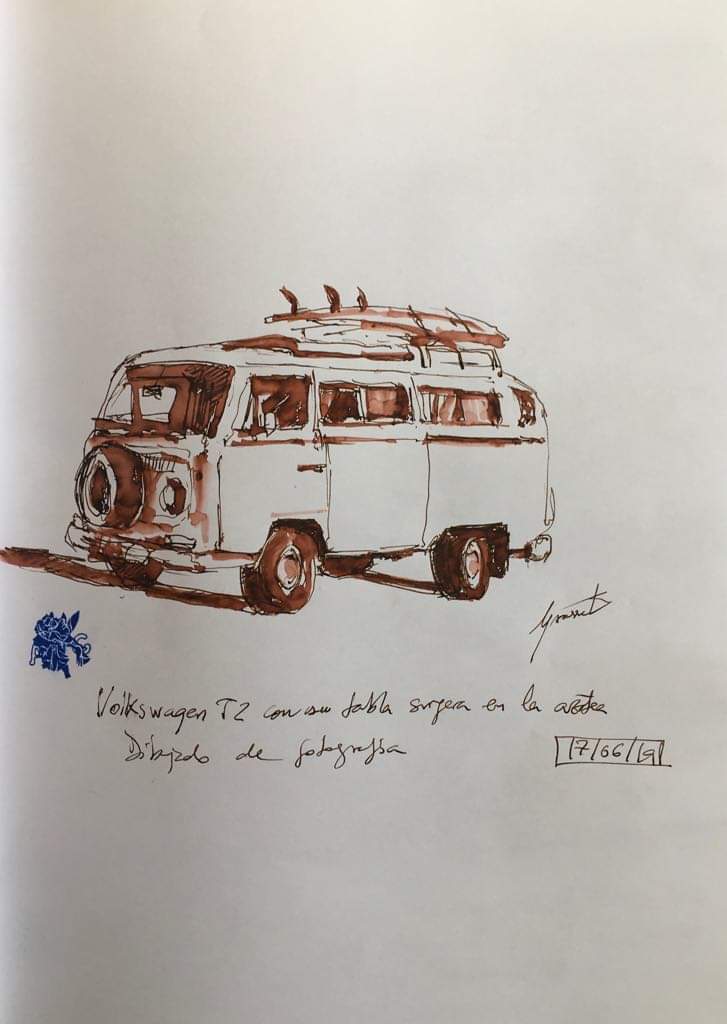 Volkswagen T2 con su tabla surfera en la azotea
Dibujado de fotografía
17/06/19